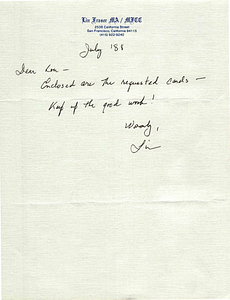 Liz Fraser MA / MFCC
2439 California Street
San Francisco, California 94115
July '88
Dear Lou —
Enclosed are the requested cards —
Keep up the good work!
Warmly,
Liz